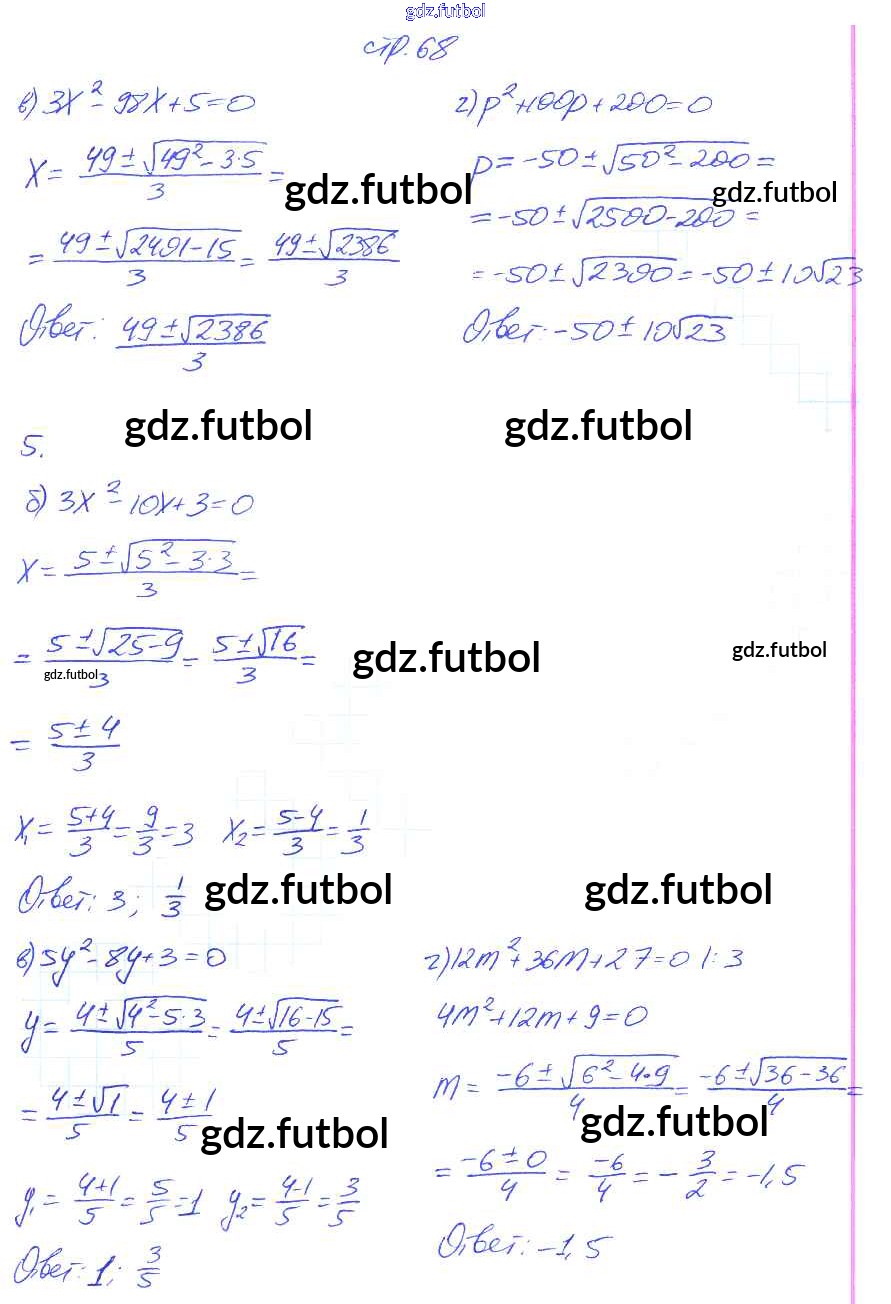 gdz.futbol
стр. 68
в) 3x² - 98x + 5 = 0
x = (49 ± √(49² - 3·5))/3 =
= (49 ± √(2401 - 15))/3 = (49 ± √2386)/3
Ответ: (49 ± √2386)/3
г) p² + 100p + 200 = 0
p = -50 ± √(50² - 200) =
= -50 ± √(2500 - 200) =
= -50 ± √2300 = -50 ± 10√23
Ответ: -50 ± 10√23
gdz.futbol
gdz.futbol
gdz.futbol
gdz.futbol
5.
б) 3x² - 10x + 3 = 0
x = (5 ± √(5² - 3·3))/3 =
= (5 ± √(25 - 9))/3 = (5 ± √16)/3 =
gdz.futbol
gdz.futbol
gdz.futbol
= (5 ± 4)/3
x₁ = (5+4)/3 = 9/3 = 3 x₂ = (5-4)/3 = 1/3
Ответ: 3; 1/3
gdz.futbol
gdz.futbol
в) 5y² - 8y + 3 = 0
y = (4 ± √(4² - 5·3))/5 = (4 ± √(16-15))/5 =
= (4 ± √1)/5 = (4 ± 1)/5
y₁ = (4+1)/5 = 5/5 = 1 y₂ = (4-1)/5 = 3/5
Ответ: 1; 3/5
г) 12m² + 36m + 27 = 0 |: 3
4m² + 12m + 9 = 0
m = (-6 ± √(6² - 4·9))/4 = (-6 ± √(36 - 36))/4 =
= (-6 ± 0)/4 = -6/4 = -3/2 = -1,5
Ответ: -1,5
gdz.futbol
gdz.futbol